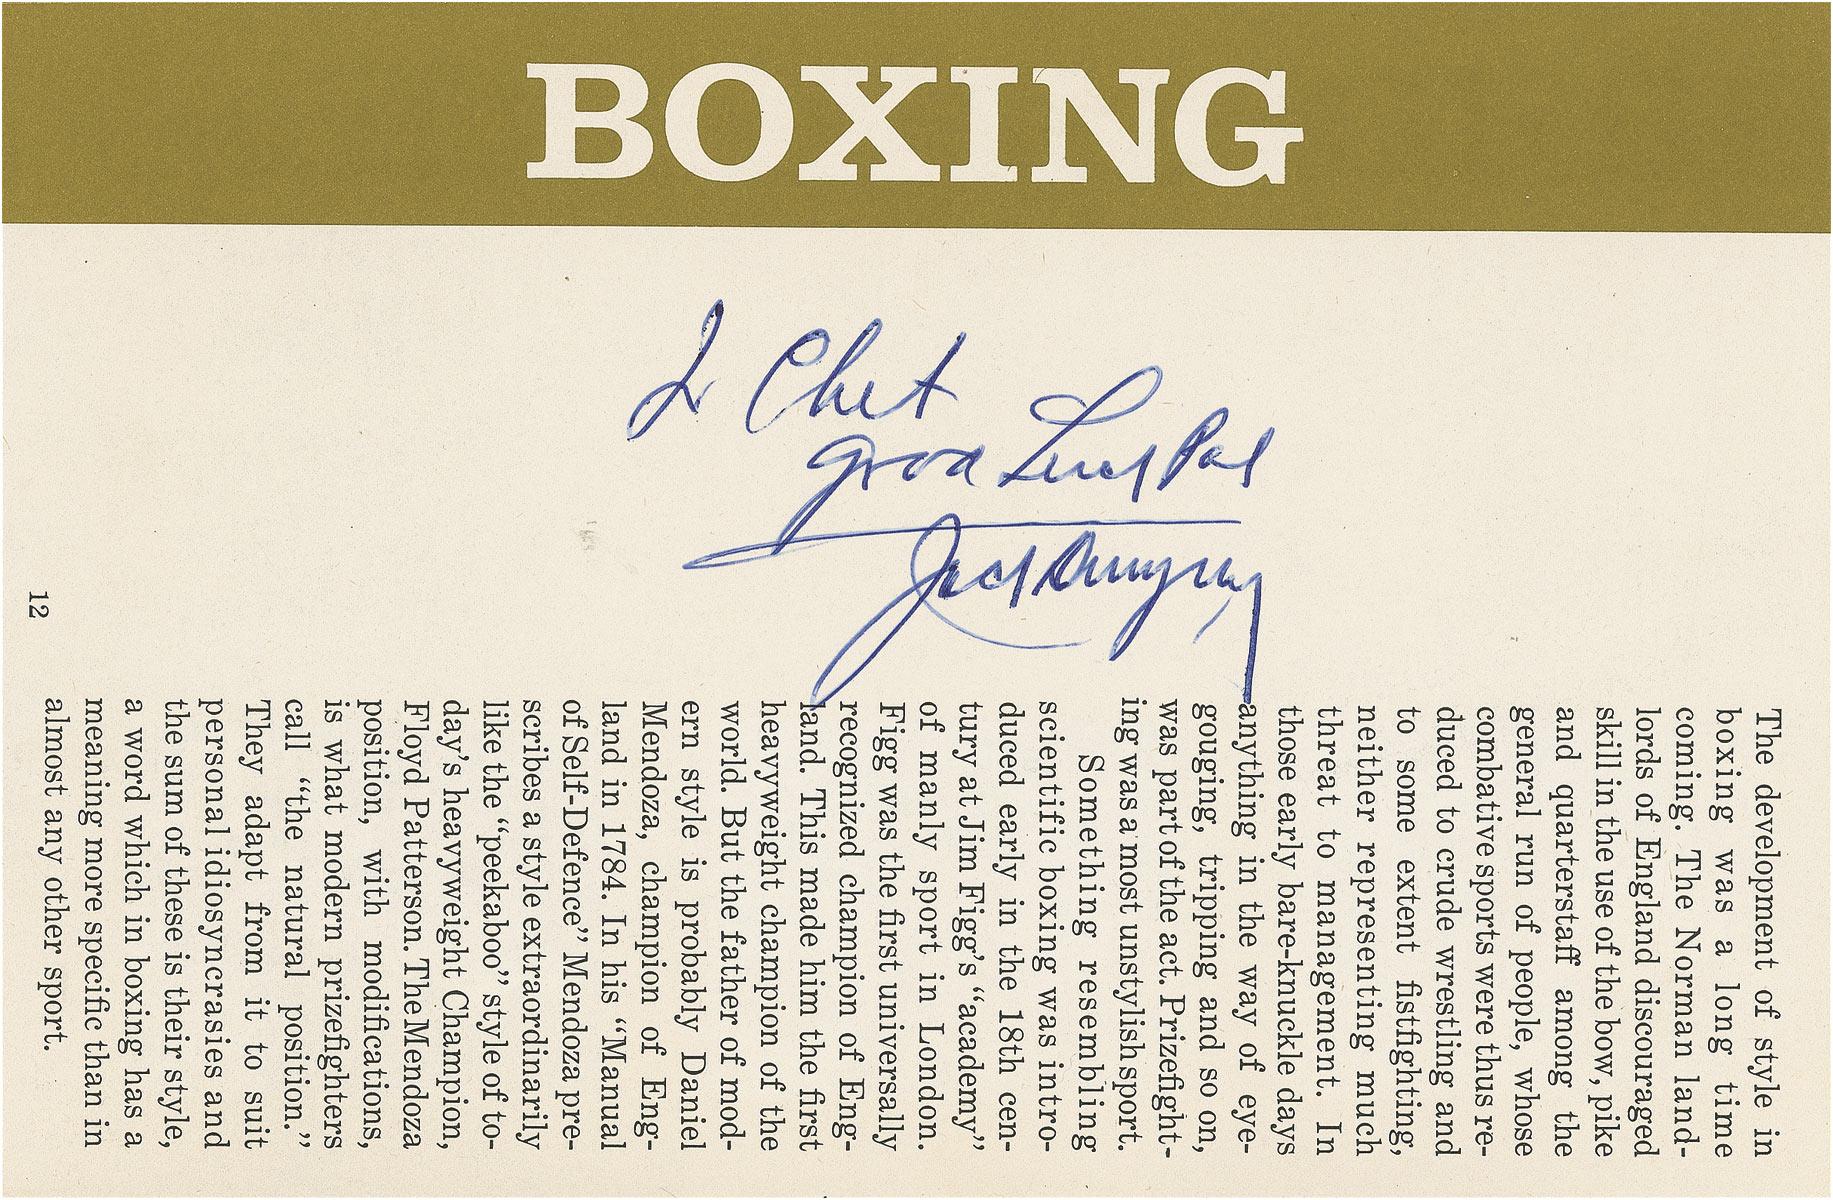 BOXING
To Chet
Good Luck Pal
Jack Dempsey
12
The development of style in
boxing was a long time
coming. The Norman land-
lords of England discouraged
skill in the use of the bow, pike
and quarterstaff among the
general run of people, whose
combative sports were thus re-
duced to crude wrestling and
to some extent fistfighting,
neither representing much
threat to management. In
those early bare-knuckle days
anything in the way of eye-
gouging, tripping and so on,
was part of the act. Prizefight-
ing was a most unstylish sport.
Something resembling
scientific boxing was intro-
duced early in the 18th cen-
tury at Jim Figg's “academy”
of manly sport in London.
Figg was the first universally
recognized champion of Eng-
land. This made him the first
heavyweight champion of the
world. But the father of mod-
ern style is probably Daniel
Mendoza, champion of Eng-
land in 1784. In his “Manual
of Self-Defence” Mendoza pre-
scribes a style extraordinarily
like the “peekaboo” style of to-
day's heavyweight Champion,
Floyd Patterson. The Mendoza
position, with modifications,
is what modern prizefighters
call “the natural position.”
They adapt from it to suit
personal idiosyncrasies and
the sum of these is their style,
a word which in boxing has a
meaning more specific than in
almost any other sport.